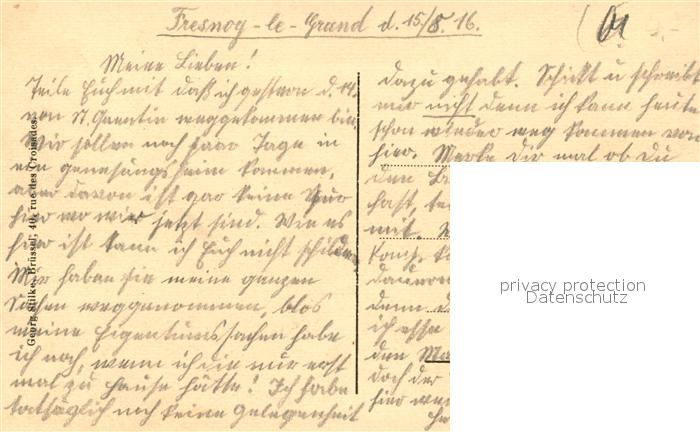 Fresnoy-le-Grand d. 15/8. 16.
Meine Lieben!
Teile Euch mit daß ich gestern d. 14.
von St. Quentin weggekommen bin.
Wir sollen noch paar Tage in
ein genesungsheim kommen,
aber davon ist gar keine Spur
hier wo wir jetzt sind. Wie es
hier ist kann ich Euch nicht schildern
Mir haben sie meine ganzen
Sachen weggenommen, blos
meine Eigentumssachen habe
ich noch, wenn ich sie nur erst
mal zu Hause hätte! Ich habe
tatsäglich noch keine Gelegenheit
dazu gehabt. Schickt u schreibt
mir nicht denn ich kann heute
schon wieder weg kommen von
hier. Merke Dir mal ob du
den
hast,
mit.
Komp.
dauern
denn
ich esse
den
doch der
hier
Georg Stilke, Brüssel, 40, rue des Croisades.
privacy protection
Datenschutz